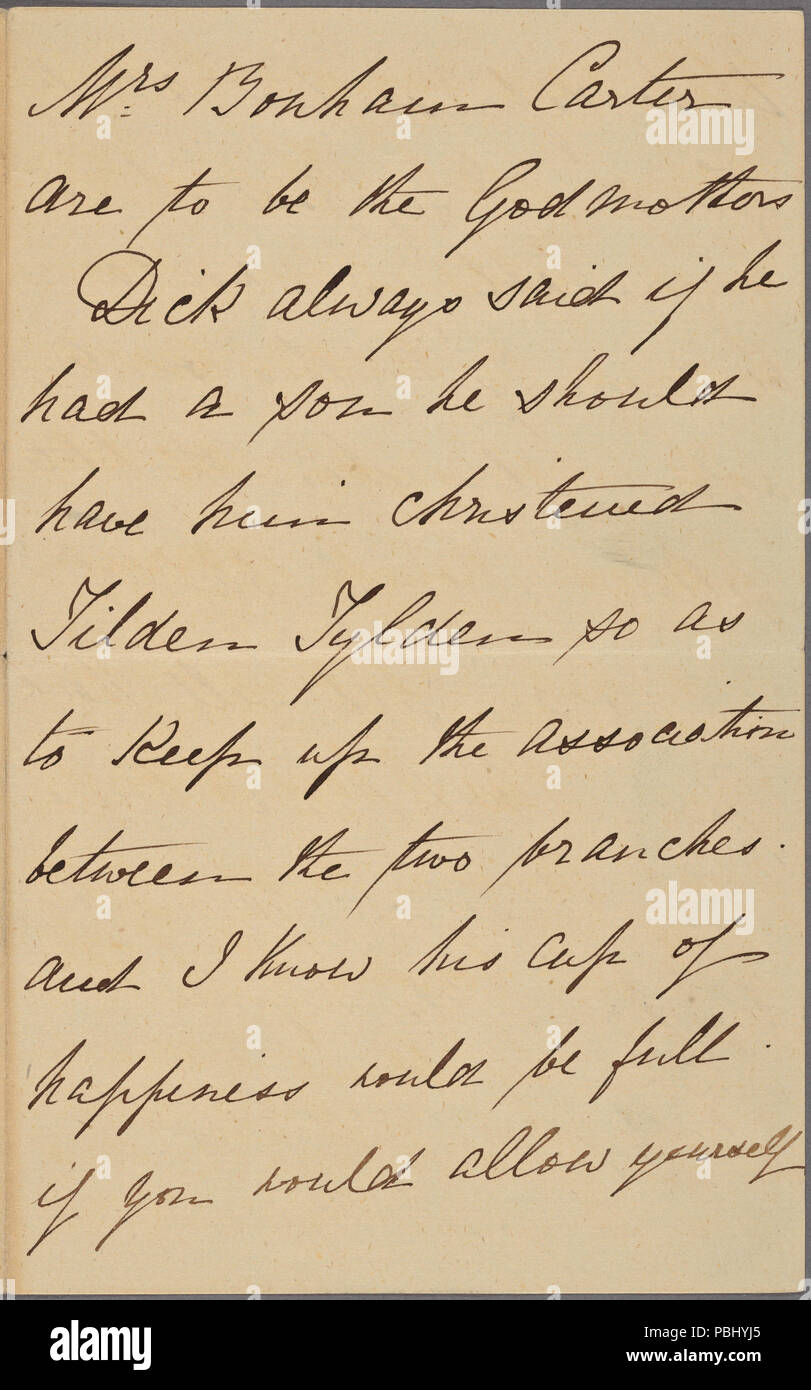 Mrs Bonham Carter
are to be the Godmothers
Dick always said if he
had a son he should
have him christened
Tilden Tylden so as
to keep up the association
between the two branches.
and I know his cup of
happiness would be full.
if you would allow yourself
alamy
alamy
alamy
Image ID: PBHYJ5
www.alamy.com